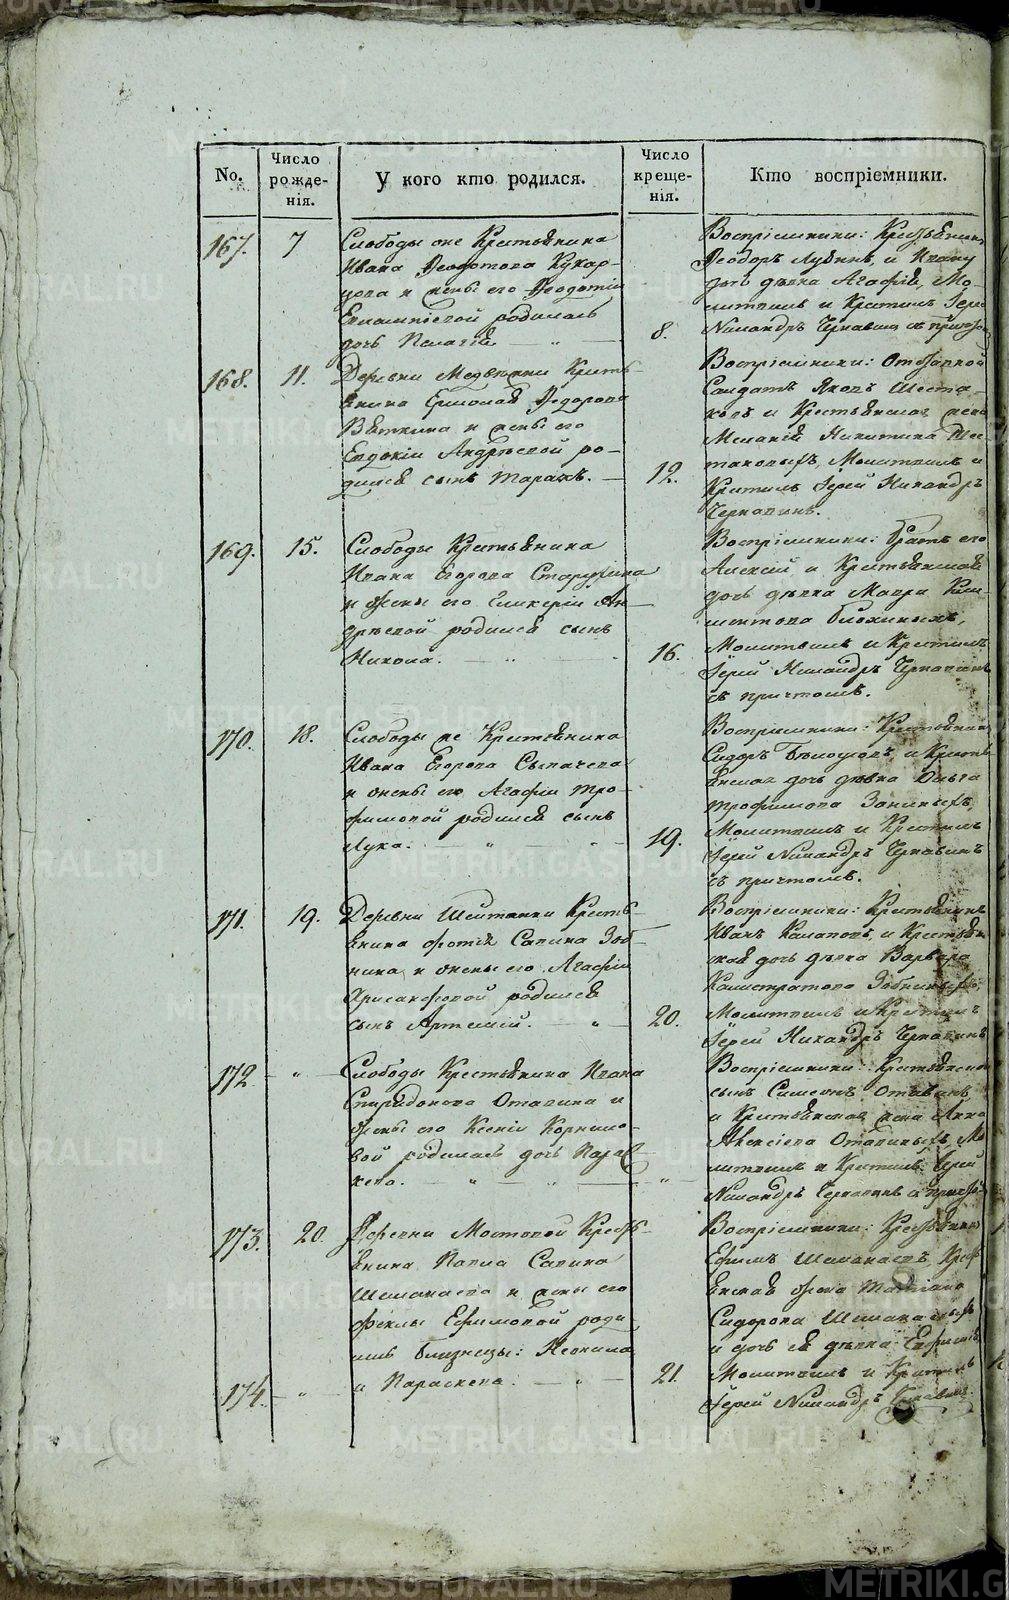 No.
Число рожде-нія.
У кого кто родился.
Число креще-нія.
Кто воспріемники.
167.
7
Слободы оне Крестьянина
Ивана Ѳеодотова Кукар-
цова и жены его Ѳеодотіи
Евлампіевой родилась
дочь Пелагія.
8.
Воспріемники: Крестьянинъ
Ѳеодоръ Лубинъ и
дочь дѣвка Агафія, Мо-
литвилъ и Крестилъ Іерей
Никандръ Чернавинъ съ причтомъ
168.
11.
Деревни Медвѣдки Кресть-
янина Ермолая Ѳедорова
Вяткина и жены его
Евдокіи Андреевой ро-
дился сынъ Тарахъ.
12.
Воспріемники: Отставной
Солдатъ Яковъ Шеста-
ковъ и Крестьянская жена
Меланія Никитина Шес-
таковыхъ, Молитвилъ и
Крестилъ Іерей Никандръ
Чернавинъ.
169.
15.
Слободы Крестьянина
Ивана Егорова
и жены его Гликеріи Ан-
дреевой родился сынъ
Никола.
16.
Воспріемники: братъ его
Алексій и Крестьянская
дочь дѣвка Мавра Кли-
ментова
Молитвилъ и Крестилъ
Іерей Никандръ Чернавинъ
съ причтомъ.
170.
18.
Слободы же Крестьянина
Ивана Егорова Сыпачева
и жены его Агафіи Тро-
фимовой родился сынъ
Лука.
19.
Воспріемники: Крестьянинъ
Сидоръ и Кресть-
янская дочь дѣвка Ольга
Трофимова Заниныхъ,
Молитвилъ и Крестилъ
Іерей Никандръ Чернавинъ
съ причтомъ.
171.
19.
Деревни Шайтанки Кресть-
янина Фотія Савина Зоб-
нина и жены его Агафіи
Хрисанфовой родился
сынъ Артемій.
20.
Воспріемники: Крестьянинъ
Иванъ и Крестьян-
ская дочь дѣвка Варвара
Калистратова Зобниныхъ,
Молитвилъ и Крестилъ
Іерей Никандръ Чернавинъ
172
"
Слободы Крестьянина Ивана
Спиридонова Отавина и
жены его Ксеніи Корнило-
вой родилась дочь Парас-
кева.
"
Воспріемники: Крестьянской
сынъ Симеонъ Отавинъ
и Крестьянская жена Анна
Алексіева Отавиныхъ, Мо-
литвилъ и Крестилъ Іерей
Никандръ Чернавинъ съ причтомъ
173.
20.
Деревни Мостовой Кресть-
янина Павла Савина
Шеманаева и жены его
Феклы Ефимовой роди
лись близнецы: Неонила
174.
"
и Параскева.
21.
Воспріемники: Крестьянинъ
Ефимъ Шеманаевъ, Кресть-
янская жена Татіана
Сидорова Шеманаевыхъ
и дочь ея дѣвка
Молитвилъ и Крестилъ
Іерей Никандръ Чернавинъ